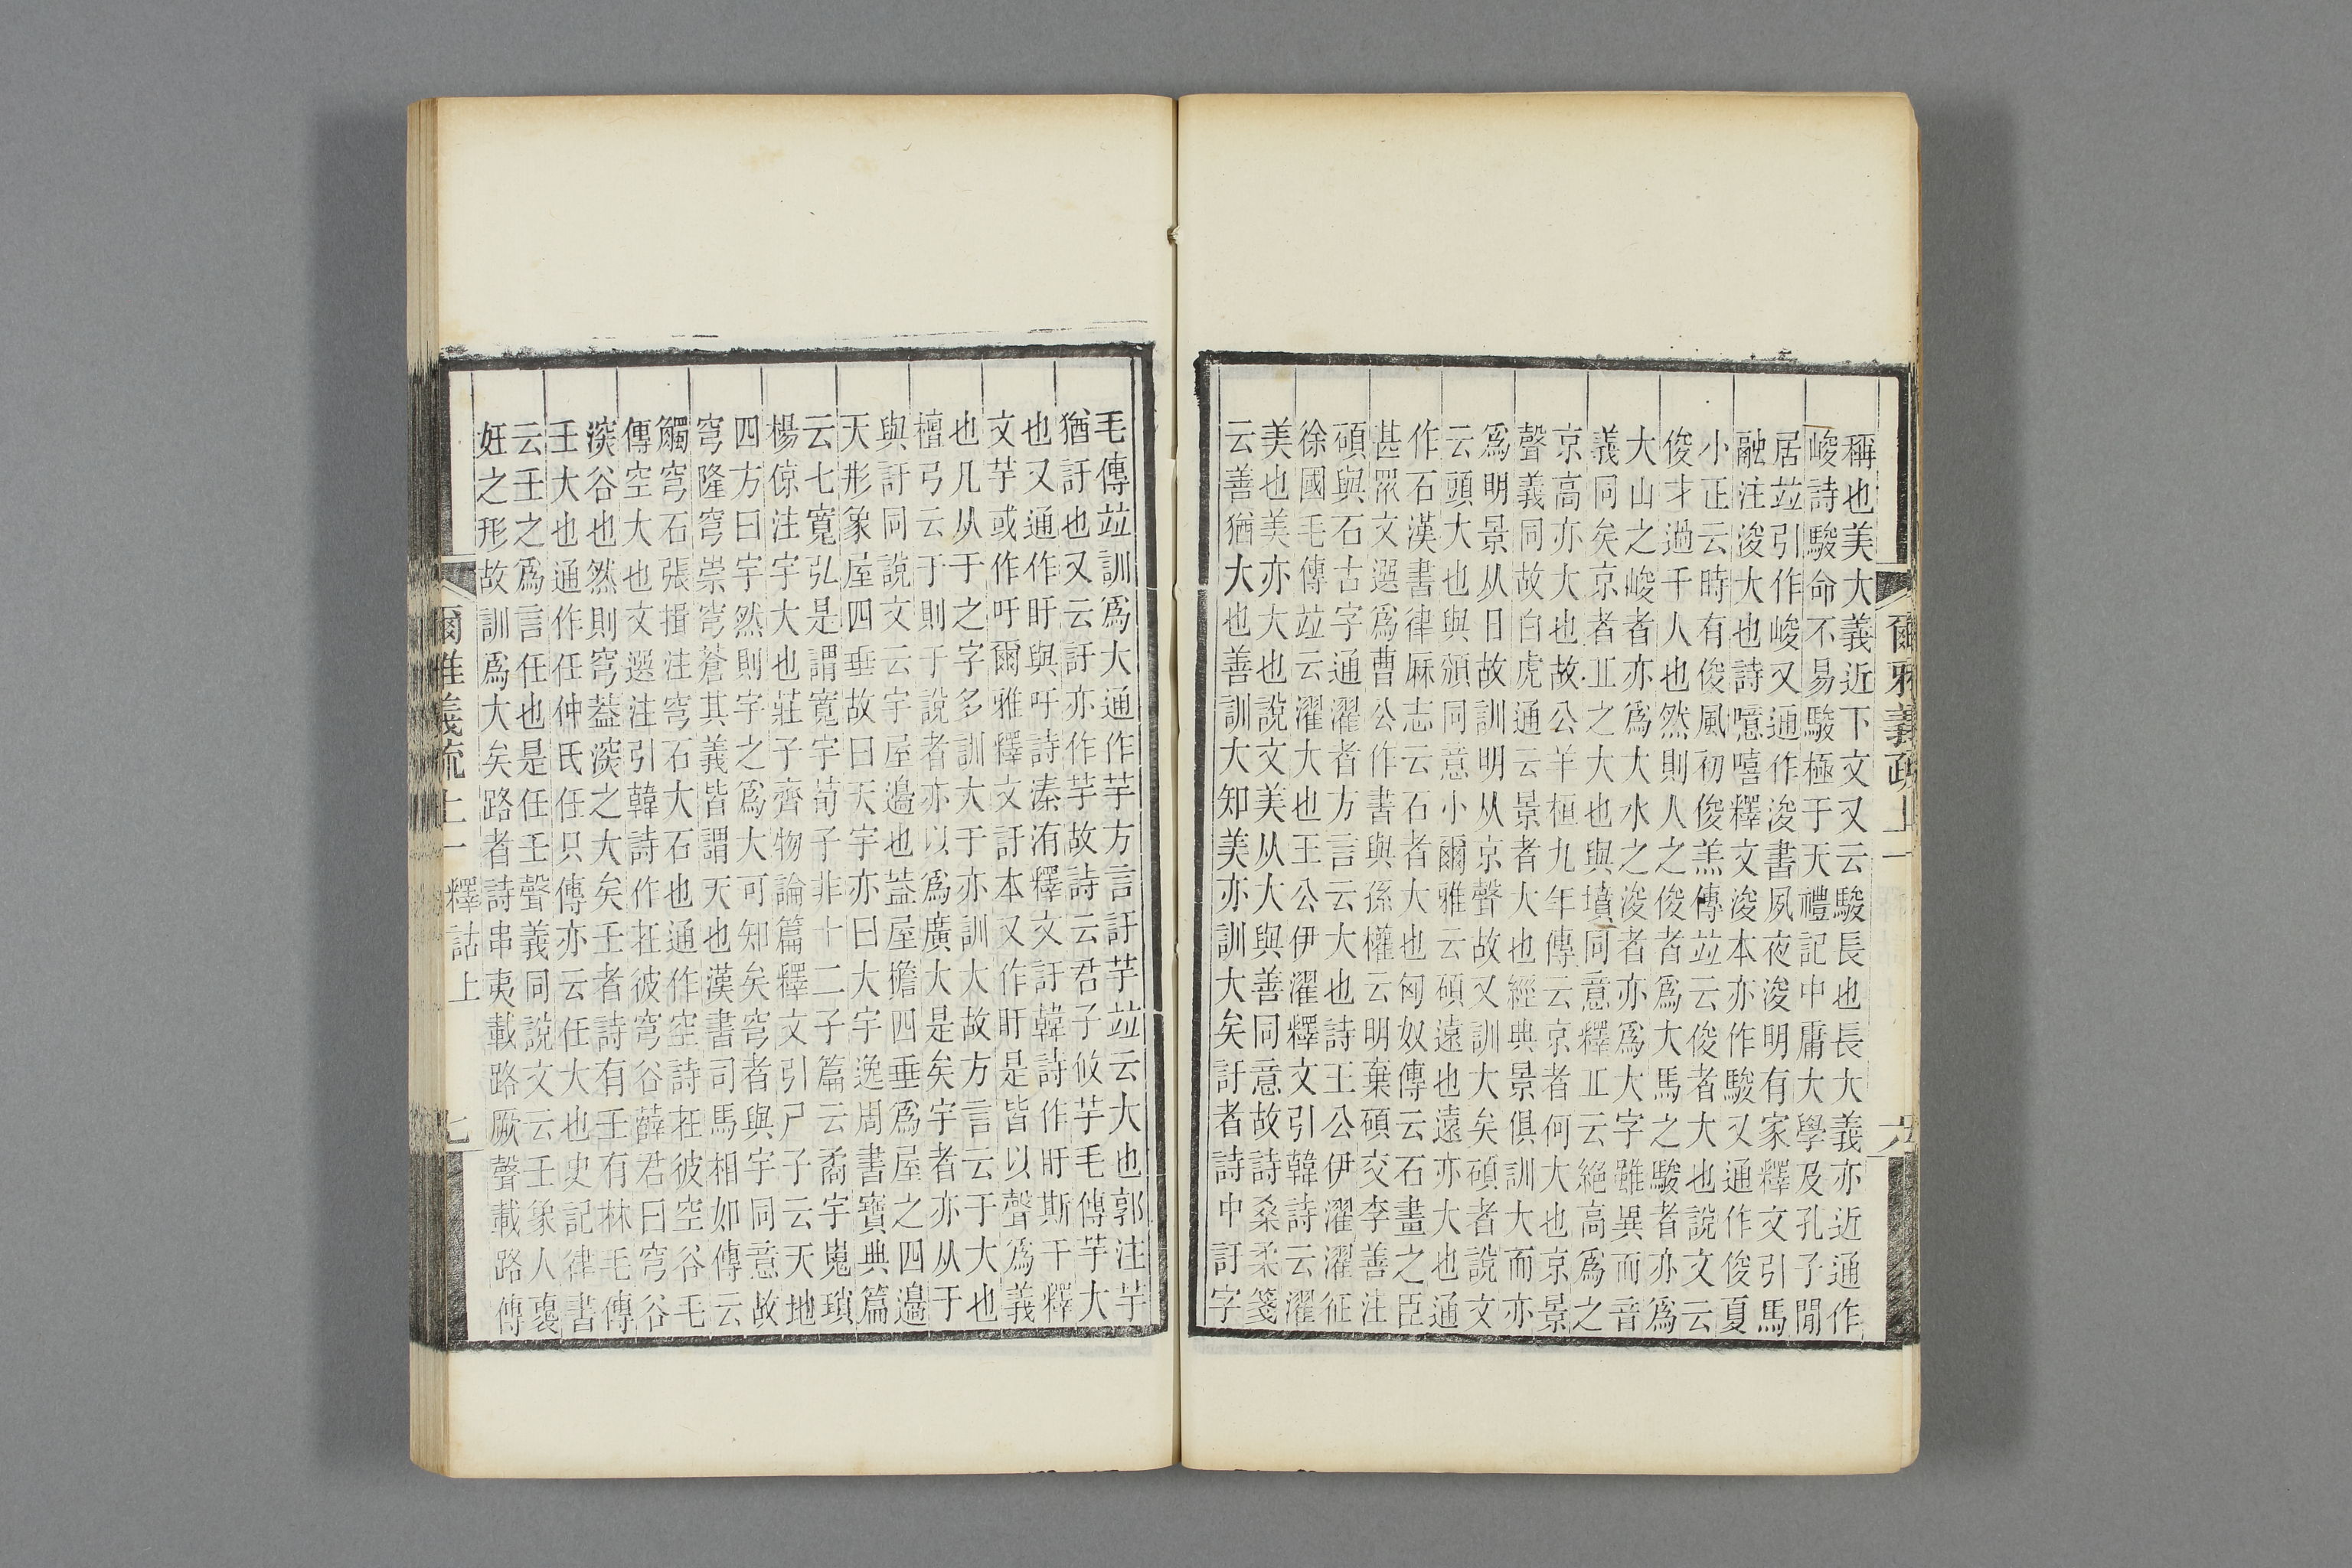 爾雅義疏上一
六
稱也美大義近下文又云駿長也長大義亦近通作
峻詩駿命不易駿極于天禮記中庸大學及孔子閒
居竝引作峻又通作浚書夙夜浚明有家釋文引馬
融注浚大也詩噫嘻釋文浚本亦作駿又通作俊夏
小正云時有俊風初俊羔傳竝云俊者大也說文云
俊才過千人也然則人之俊者爲大馬之駿者亦爲
大山之峻者亦爲大水之浚者亦爲大字雖異而音
義同矣京者丘之大也與墳同意釋丘云絕高爲之
京高亦大也故公羊桓九年傳云京者何大也京景
聲義同故白虎通云景者大也經典景俱訓大而亦
爲明景从日故訓明从京聲故又訓大矣碩者說文
云頭大也與頒同意小爾雅云碩遠也遠亦大也通
作石漢書律厤志云石者大也匈奴傳云石畫之臣
甚眾文選爲曹公作書與孫權云明棄碩交李善注
碩與石古字通濯者方言云大也詩王公伊濯濯征
徐國毛傳竝云濯大也王公伊濯釋文引韓詩云濯
美也美亦大也說文美从大與善同意故詩桑柔箋
云善猶大也善訓大知美亦訓大矣訏者詩中訏字
毛傳竝訓爲大通作芋方言訏芋竝云大也郭注芋
猶訏也又云訏亦作芋故詩云君子攸芋毛傳芋大
也又通作盱與吁詩溱洧釋文訏韓詩作盱斯干釋
文芋或作吁爾雅釋文訏本又作盱是皆以聲爲義
也凡从于之字多訓大于亦訓大故方言云于大也
檀弓云于則于說者亦以爲廣大是矣宇者亦从于
與訏同說文云宇屋邊也葢屋檐四垂爲屋之四邊
天形象屋四垂故曰天宇亦曰大宇逸周書寶典篇
云七寬弘是謂寬宇荀子非十二子篇云矞宇嵬瑣
楊倞注宇大也莊子齊物論篇釋文引尸子云天地
四方曰宇然則宇之爲大可知矣穹者與宇同意故
穹隆穹崇穹蒼其義皆謂天也漢書司馬相如傳云
觸穹石張揖注穹石大石也通作空詩在彼空谷毛
傳空大也文選注引韓詩作在彼穹谷薛君曰穹谷
深谷也然則穹葢深之大矣壬者詩有壬有林毛傳
壬大也通作任仲氏任只傳亦云任大也史記律書
云壬之爲言任也是任壬聲義同說文云壬象人褱
妊之形故訓爲大矣路者詩串夷載路厥聲載路傳
爾雅義疏上一 釋詁上
七